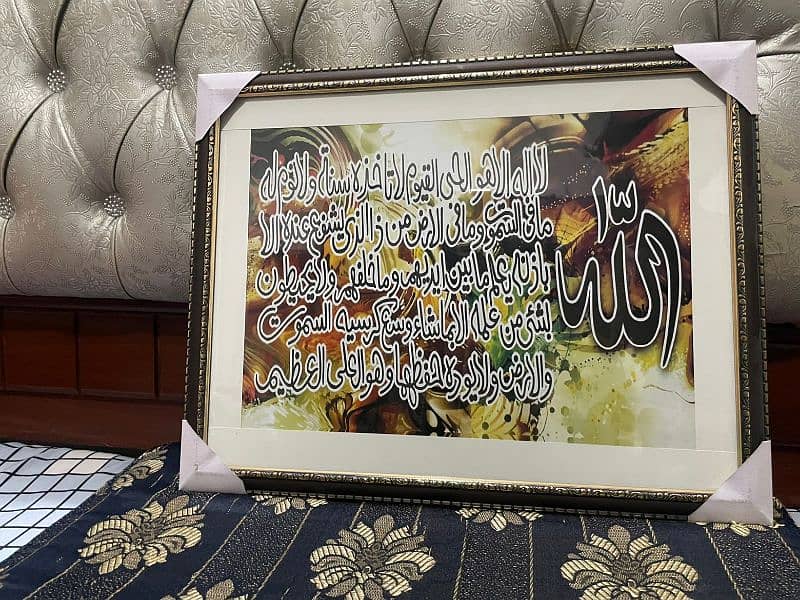 الله
لا اله الا هو الحي القيوم لا تاخذه سنة ولا نوم له
ما في السموت وما في الارض من ذالذي يشفع عنده الا
باذنه يعلم ما بين ايديهم وما خلفهم ولا يحيطون
بشئ من علمه الا بما شاء وسع كرسيه السموت
والارض ولا يوده حفظهما وهو العلي العظيم